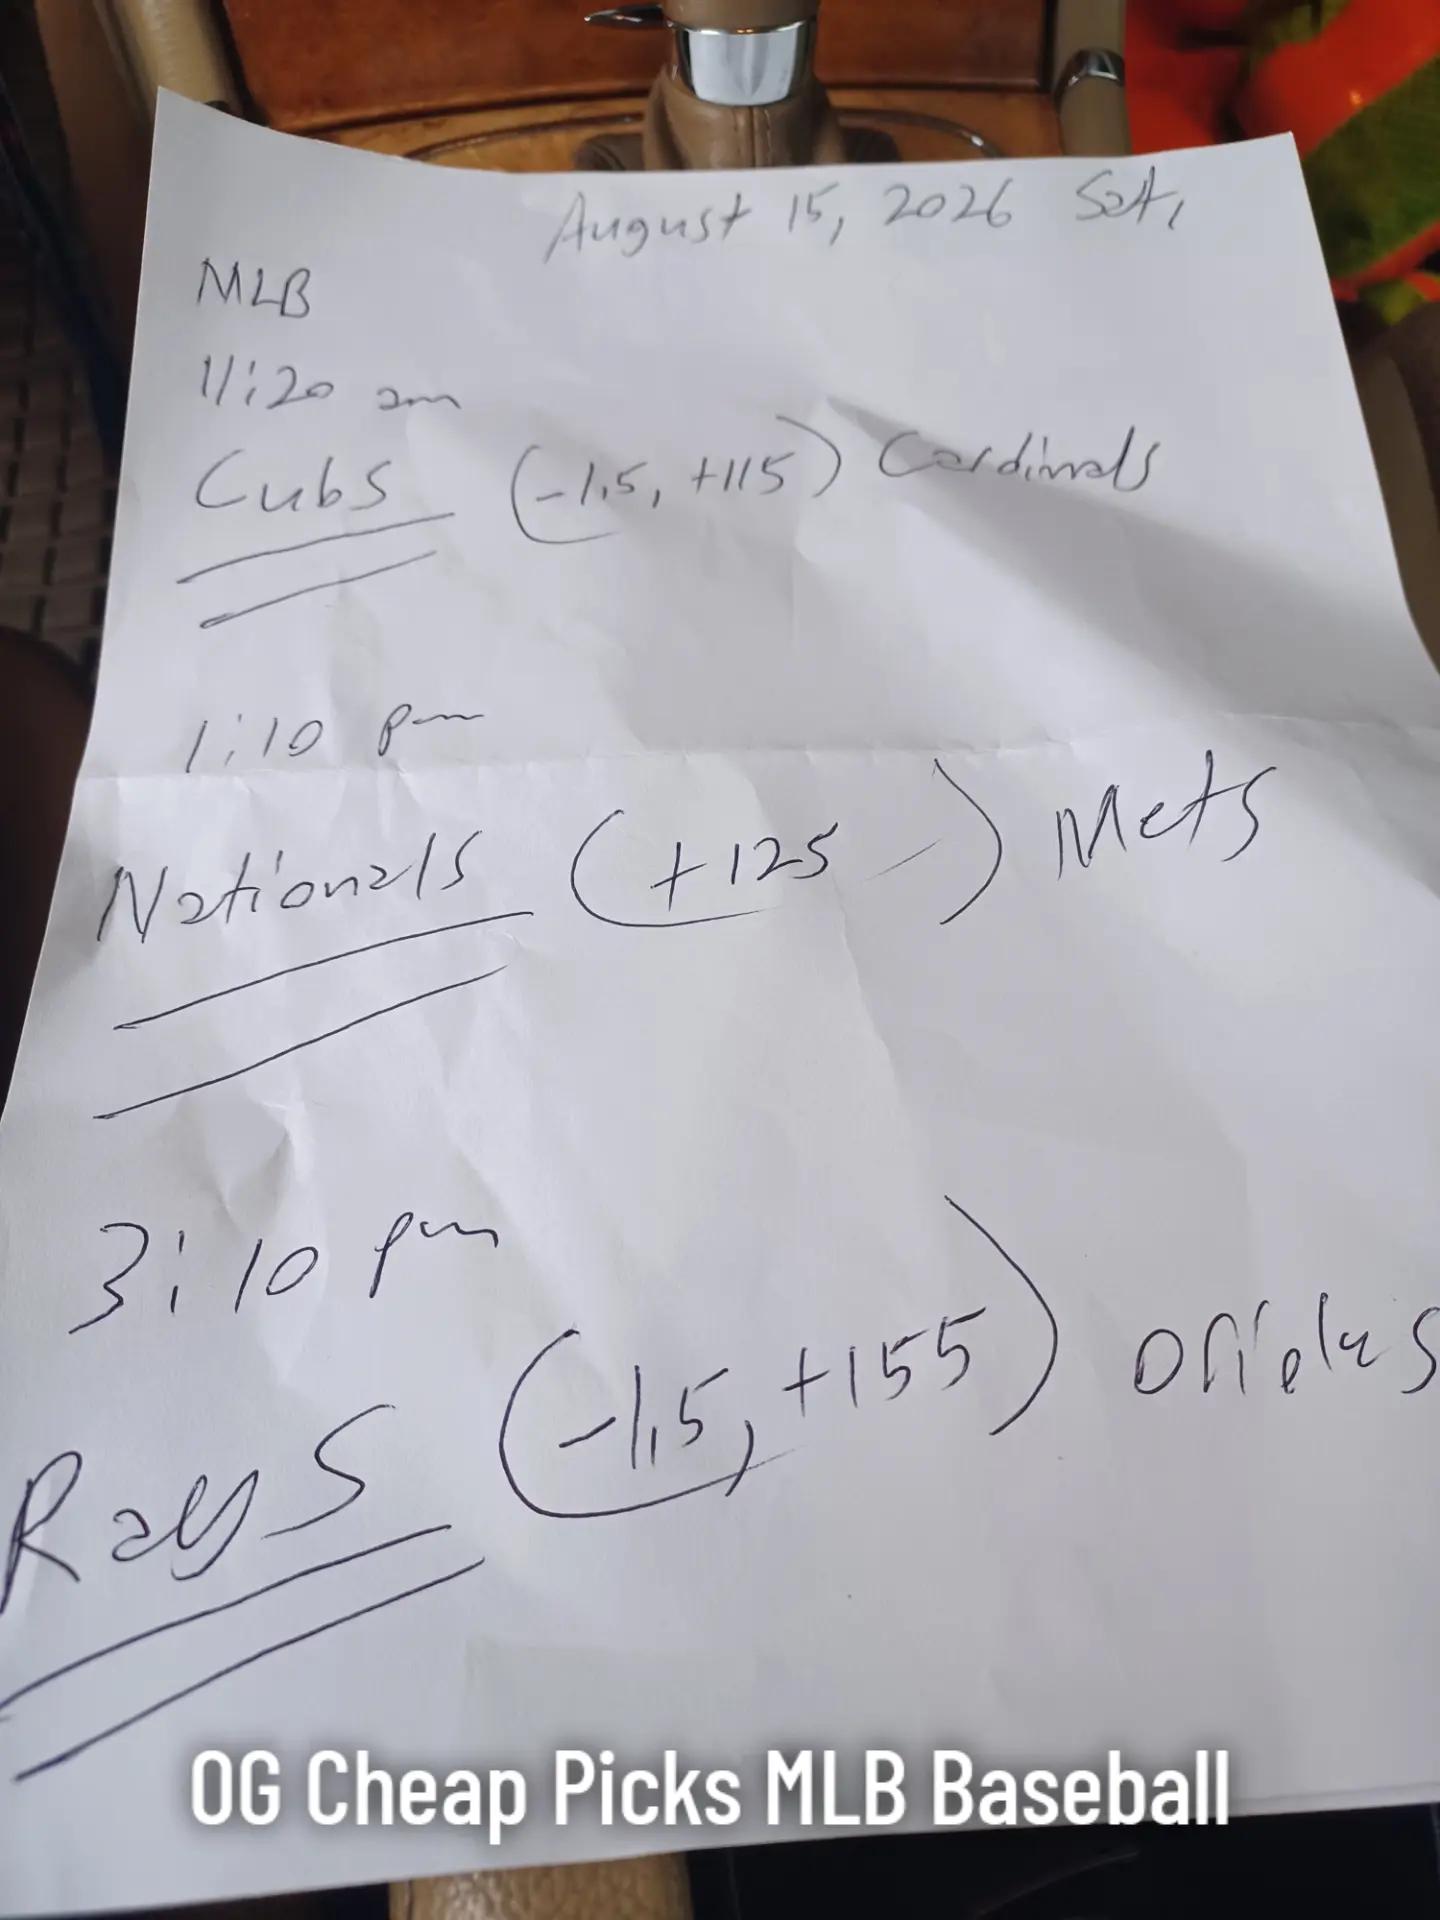 August 15, 2026 Sat,
MLB
11:20 am
Cubs (-1.5, +115) Cardinals
1:10 pm
Nationals (+125) Mets
3:10 pm
Rays (-1.5, +155) Orioles
OG Cheap Picks MLB Baseball